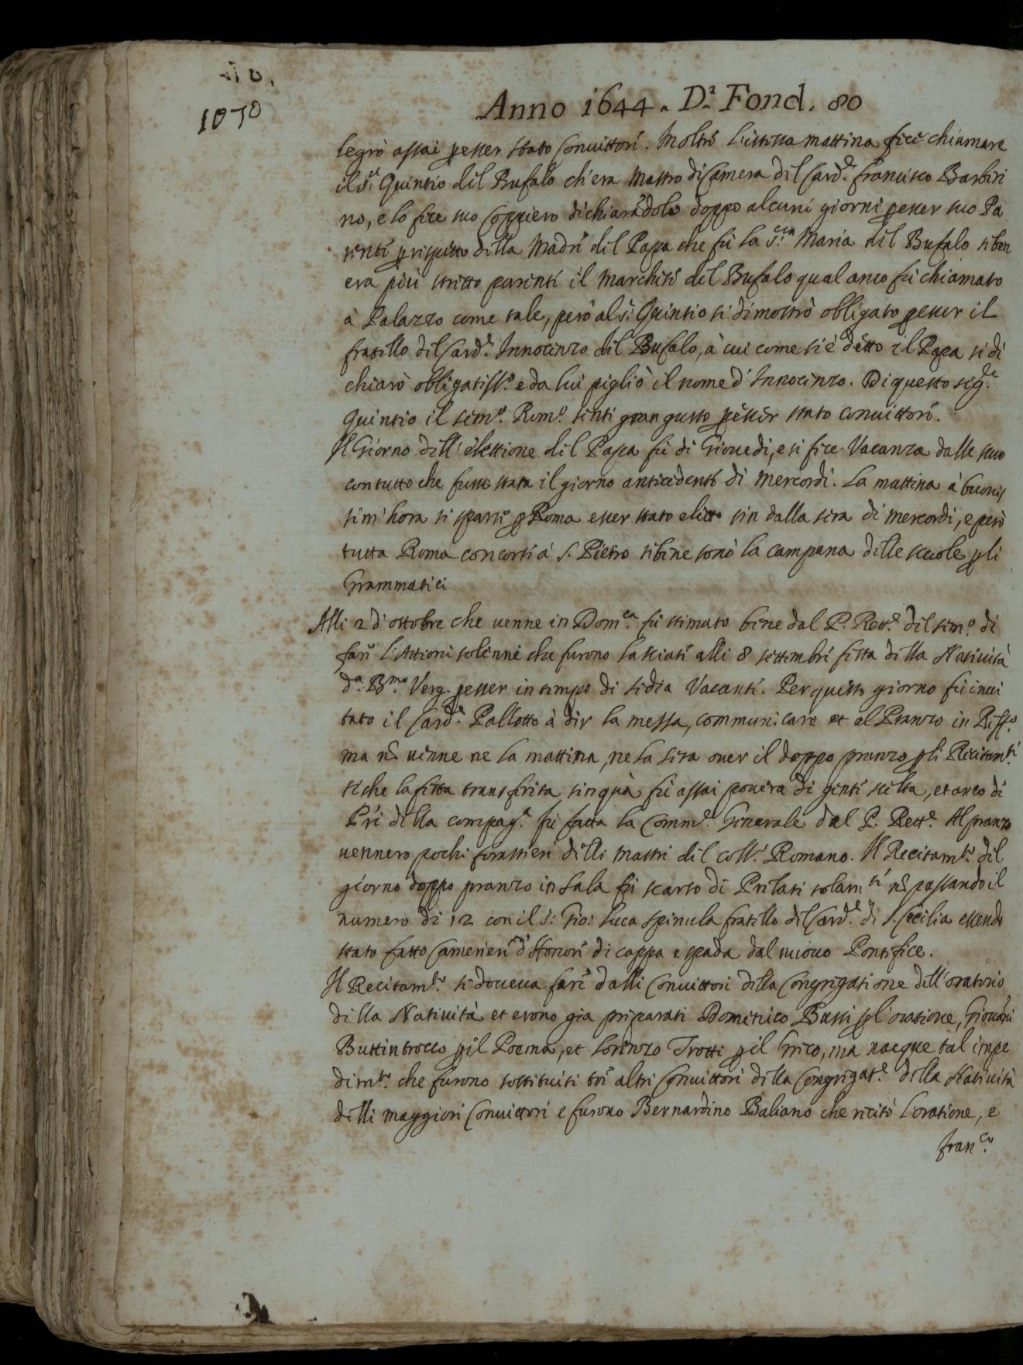 1070
Anno 1644. D.ª Fond. 80
legrò assai p esser stato Convittore. Inoltre l'istessa mattina fece chiamare
il S.r Quintio del Bufalo ch'era Mastro di Camera del Card.le Francesco Barberi
no, e lo fece suo Coppiero dichiarādolo doppo alcuni giorni p esser suo Pa
rente p rispetto della Madre del Papa che fù la S.ra Maria del Bufalo se ben
era più stretto parente il Marchese del Bufalo qual anco fù chiamato
à Palazzo come tale, però al S.r Quintio si dimostrò obligato p esser il
fratello del Card.le Innocenzo del Bufalo, à cui come si è detto il Papa si di
chiarò obligatiss.o e da lui pigliò il nome d'Innocenzo. Di questo sig.re
Quintio il sem.o Rom.o sentì gran gusto p esser stato convittore.
Il Giorno dell'elettione del Papa fù di Giovedi, e si fece Vacanza dalle scuo
con tutto che fusse stata il giorno antecedente di Mercordi. La mattina à buonis
sim'hora si sparse p Roma esser stato eletto sin dalla sera di Mercordi, e però
tutta Roma concorse à S. Pietro se bene sonò la campana delle scuole p li
Grammatici
Alli 2 d'ottobre che venne in Dom.ca fù stimato bene dal P. Rett.e del sem.o di
fare l'Attioni solenne che furono lasciate alli 8 settembre festa della Natività
d.a B.ma Verg. p esser in tempo di sedia Vacante. Per questo giorno fù invi
tato il Card.le Pallotto à dir la messa, communicare et al Pranzo in Reff.o
ma nō venne ne la mattina, ne la sera over il doppo pranzo p li Recitam.ti
siche la festa transferita sin quà fù assai povera di gente scelta, et anco di
Pri della compag.a fù fatta la Comm.e Generale dal P. Rett.e Al pranzo
vennero pochi forastieri delli Mastri del Coll.o Romano. Il Recitam.to del
giorno doppo pranzo in Sala fù scarso di Prelati solam.te nō passando il
numero di 12 con il S.r Gio: Luca Spinula fratello del Card.le di S. Cecilia essendo
stato fatto Cameriere d'Honore di cappa e spada dal nuovo Pontefice.
Il Recitam.to si doveva fare dalli Convittori della Congregatione dell'oratorio
della Natività et erono gia preparati Domenico Bussi p l'oratione, Giovāni
Buttintrocco p il Poema, et Lorenzo Trotti p il Greco, ma nacque tal impe
dim.to che furono sostituiti tre altri Convittori della Congregat.e della Natività
delli maggiori Convittori e furono Bernardino Babiano che recitò l'oratione, e
Fran.co